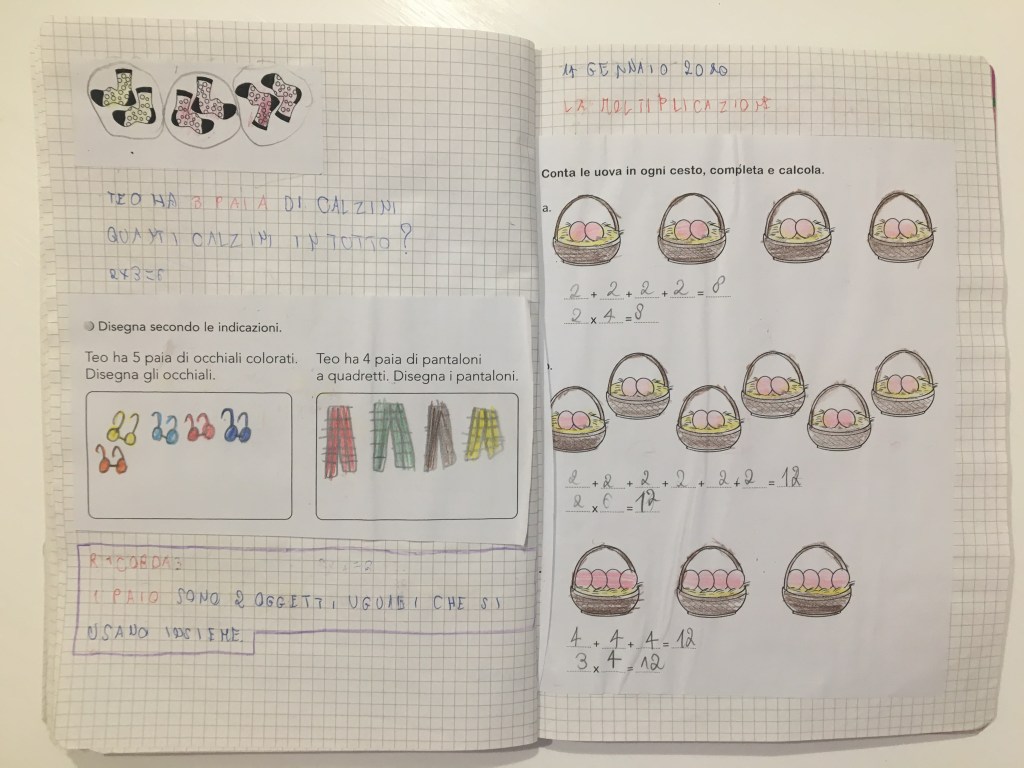 TEO HA 3 PAIA DI CALZINI
QUANTI CALZINI IN TOTTO?
2x3=6
Disegna secondo le indicazioni.
Teo ha 5 paia di occhiali colorati.
Disegna gli occhiali.
Teo ha 4 paia di pantaloni
a quadretti. Disegna i pantaloni.
RICORDA:
1 PAIO SONO 2 OGGETTI UGUALI CHE SI
USANO INSIEME.
GENNAIO 2020
LA MOLTIPLICAZIONE
Conta le uova in ogni cesto, completa e calcola.
a.
2 + 2 + 2 + 2 = 8
2 x 4 = 8
2 + 2 + 2 + 2 + 2 + 2 = 12
2 x 6 = 12
4 + 4 + 4 = 12
3 x 4 = 12